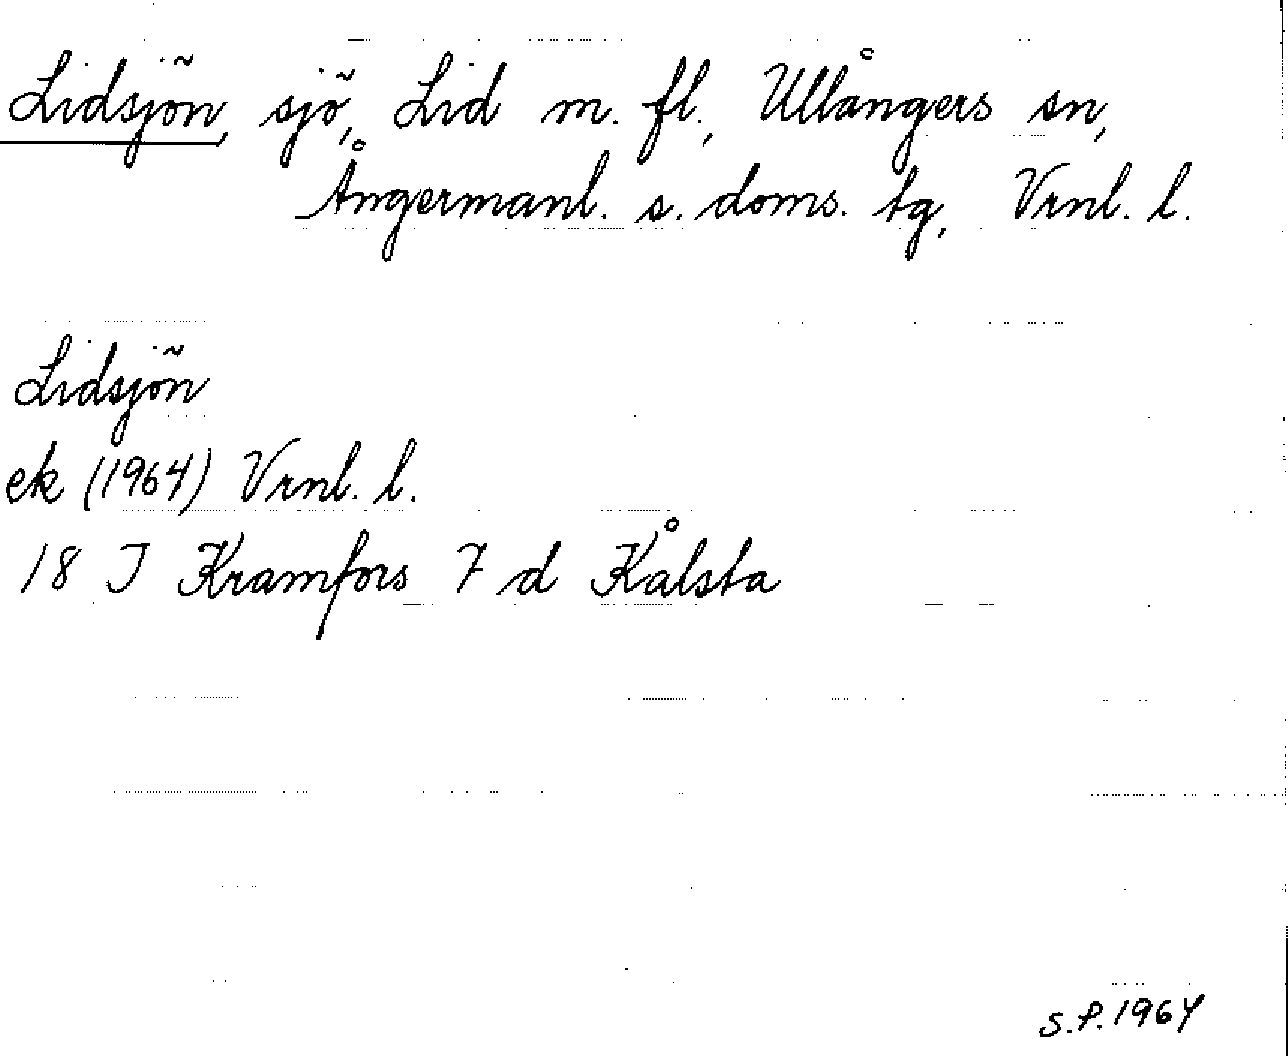 Lidsjön, sjö, Lid m. fl., Ullångers sn,
Ångermanl. s. doms. tg, Vrnl. l.
Lidsjön
ek (1964) Vrnl. l.
18 J Kramfors 7 d Kålsta
S.P. 1964